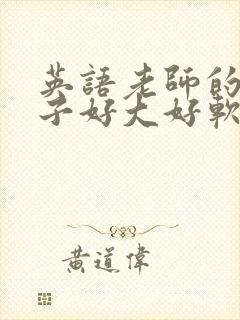 英語老師的
子好大好軟
黃道偉